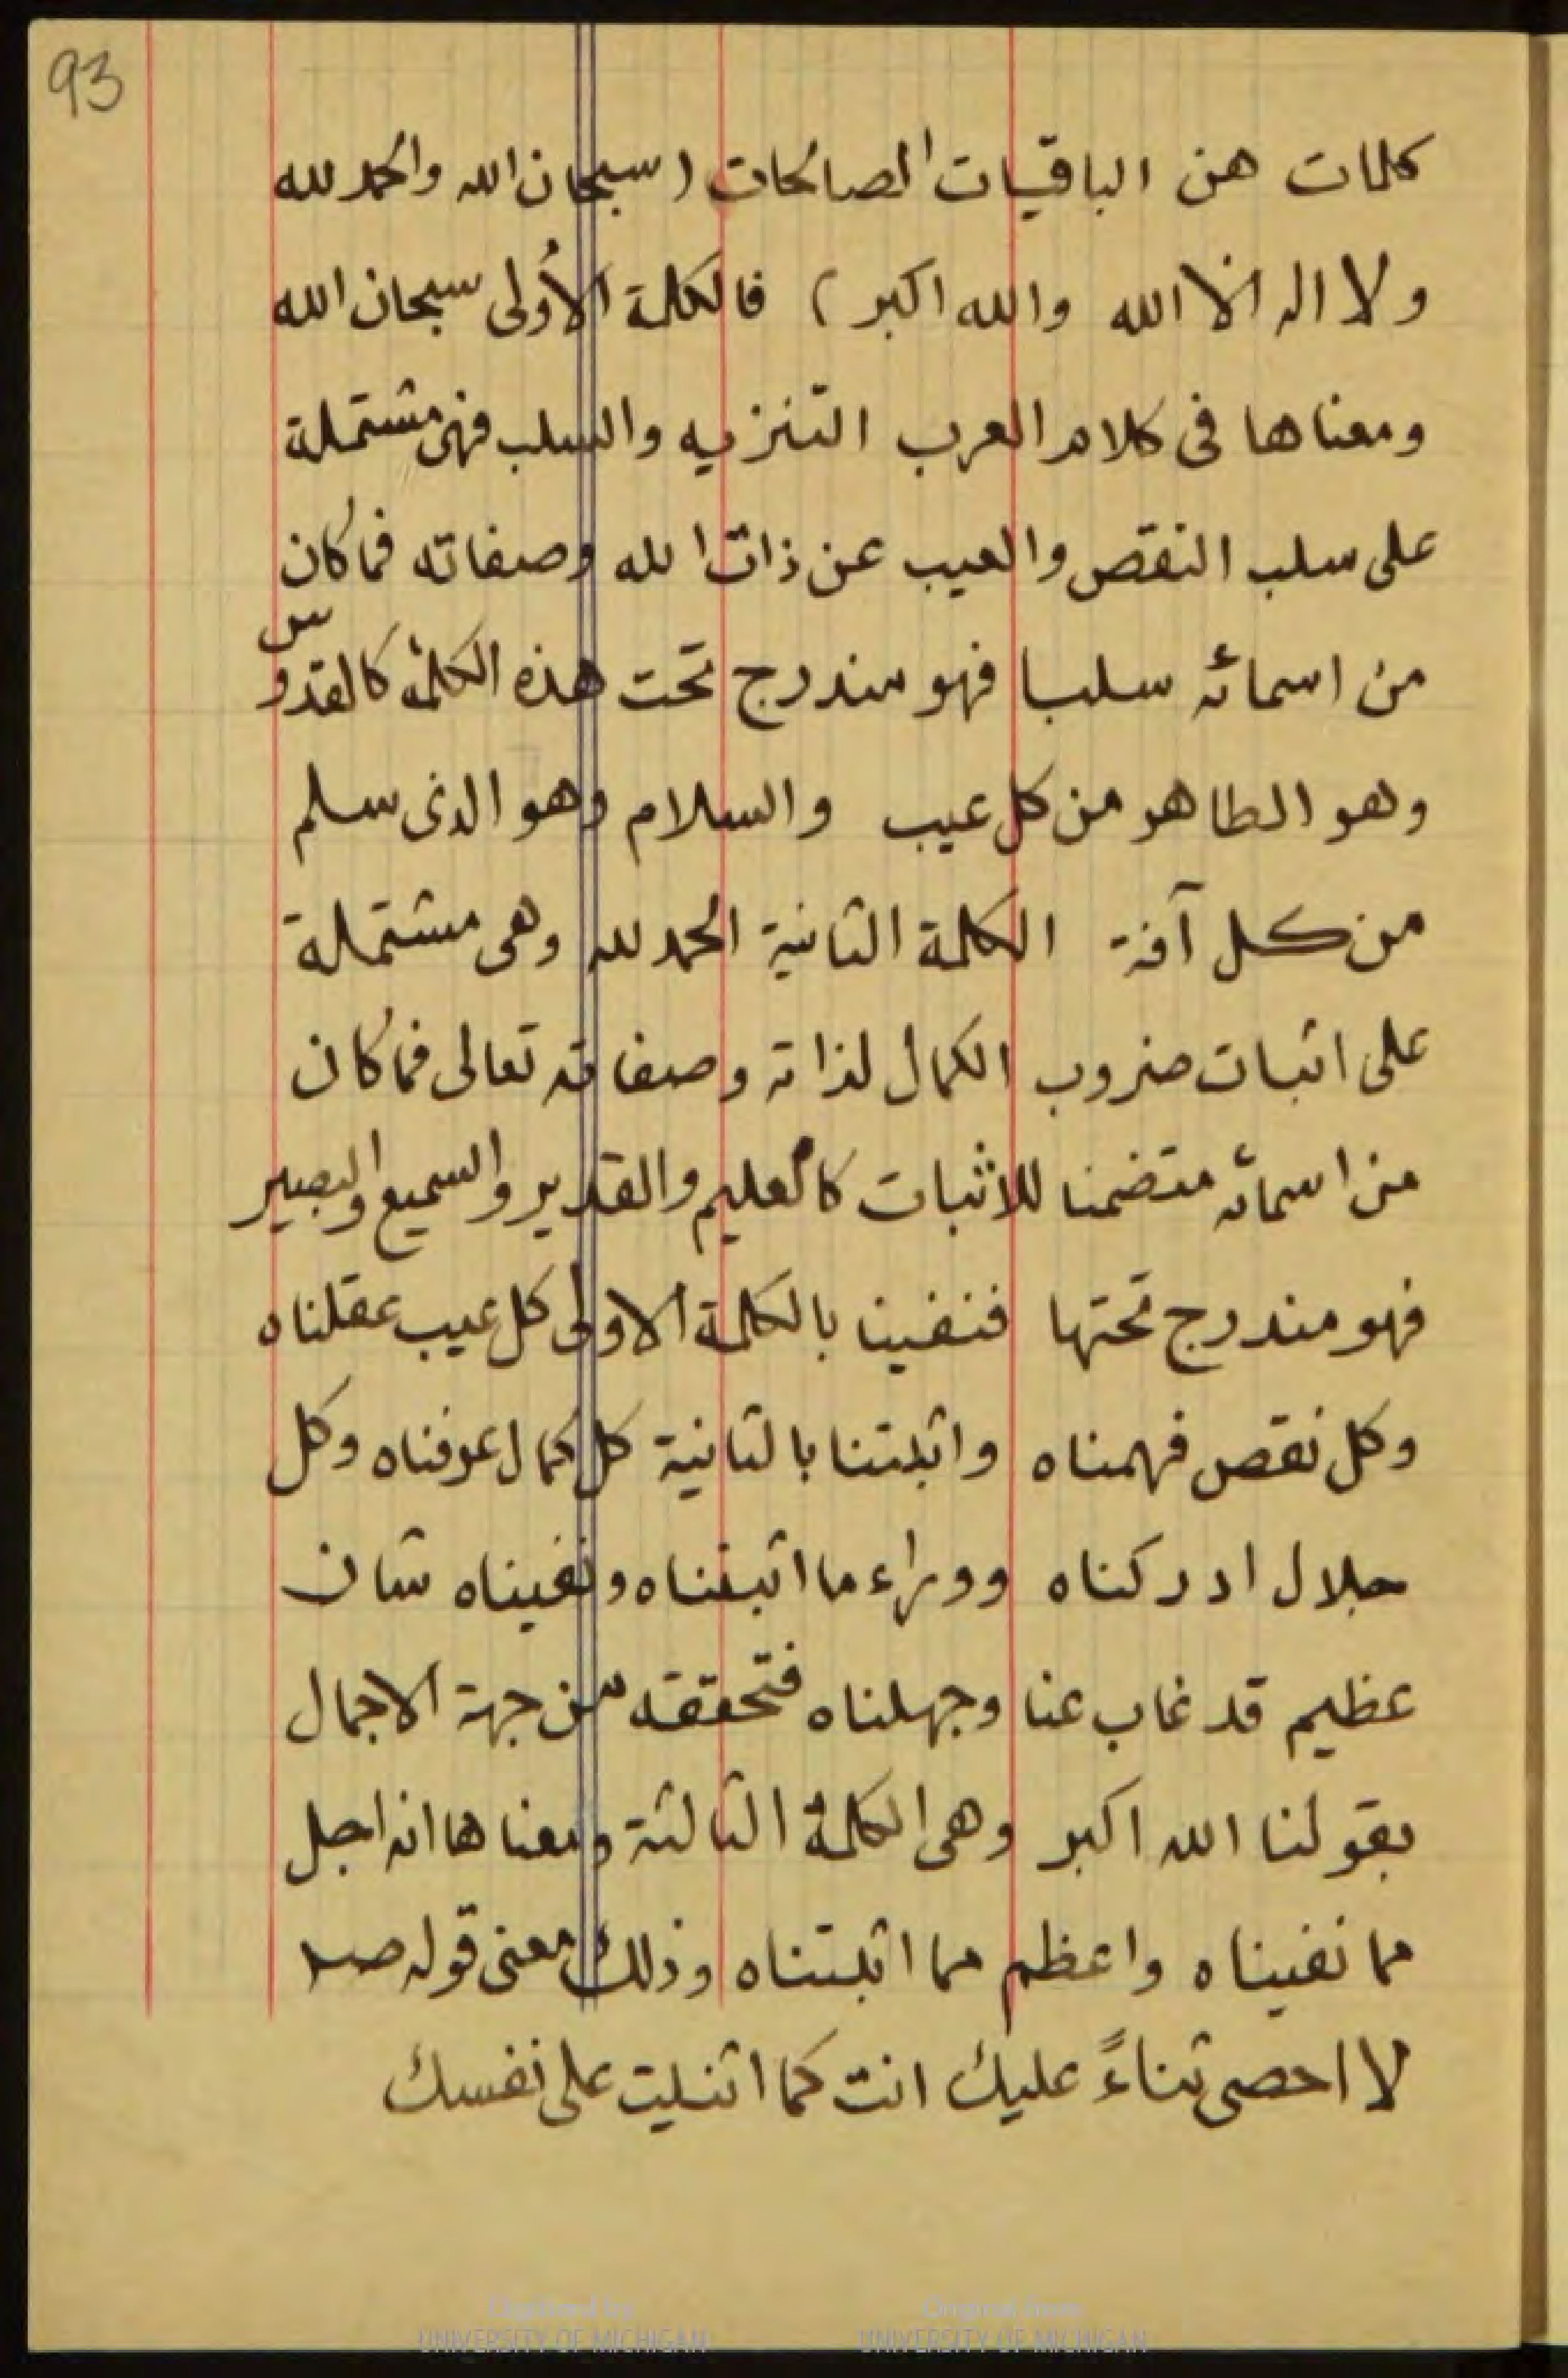 93
كلمات هن الباقيات الصالحات (سبحان الله والحمد لله
ولا اله الا الله والله اكبر) فالكلمة الأولى سبحان الله
ومعناها فى كلام العرب التنزيه والسلب فهى مشتملة
على سلب النقص والعيب عن ذات الله وصفاته فما كان
من اسمائه سلبا فهو مندرج تحت هذه الكلمة كالقدوس
وهو الطاهر من كل عيب والسلام وهو الذى سلم
من كل آفة الكلمة الثانية الحمد لله وهى مشتملة
على اثبات ضروب الكمال لذاته وصفاته تعالى فما كان
من اسمائه متضمنا للاثبات كالعليم والقدير والسميع والبصير
فهو مندرج تحتها فنفينا بالكلمة الاولى كل عيب عقلناه
وكل نقص فهمناه واثبتنا بالثانية كل كمال عرفناه وكل
جلال ادركناه ووراء ما اثبتناه ونفيناه شان
عظيم قد غاب عنا وجهلناه فتحققه من جهة الاجمال
بقولنا الله اكبر وهى الكلمة الثالثة ومعناها انه اجل
مما نفيناه واعظم مما اثبتناه وذلك معنى قوله صم
لا احصى ثناءً عليك انت كما اثنيت على نفسك
Digitized by
UNIVERSITY OF MICHIGAN
Original from
UNIVERSITY OF MICHIGAN